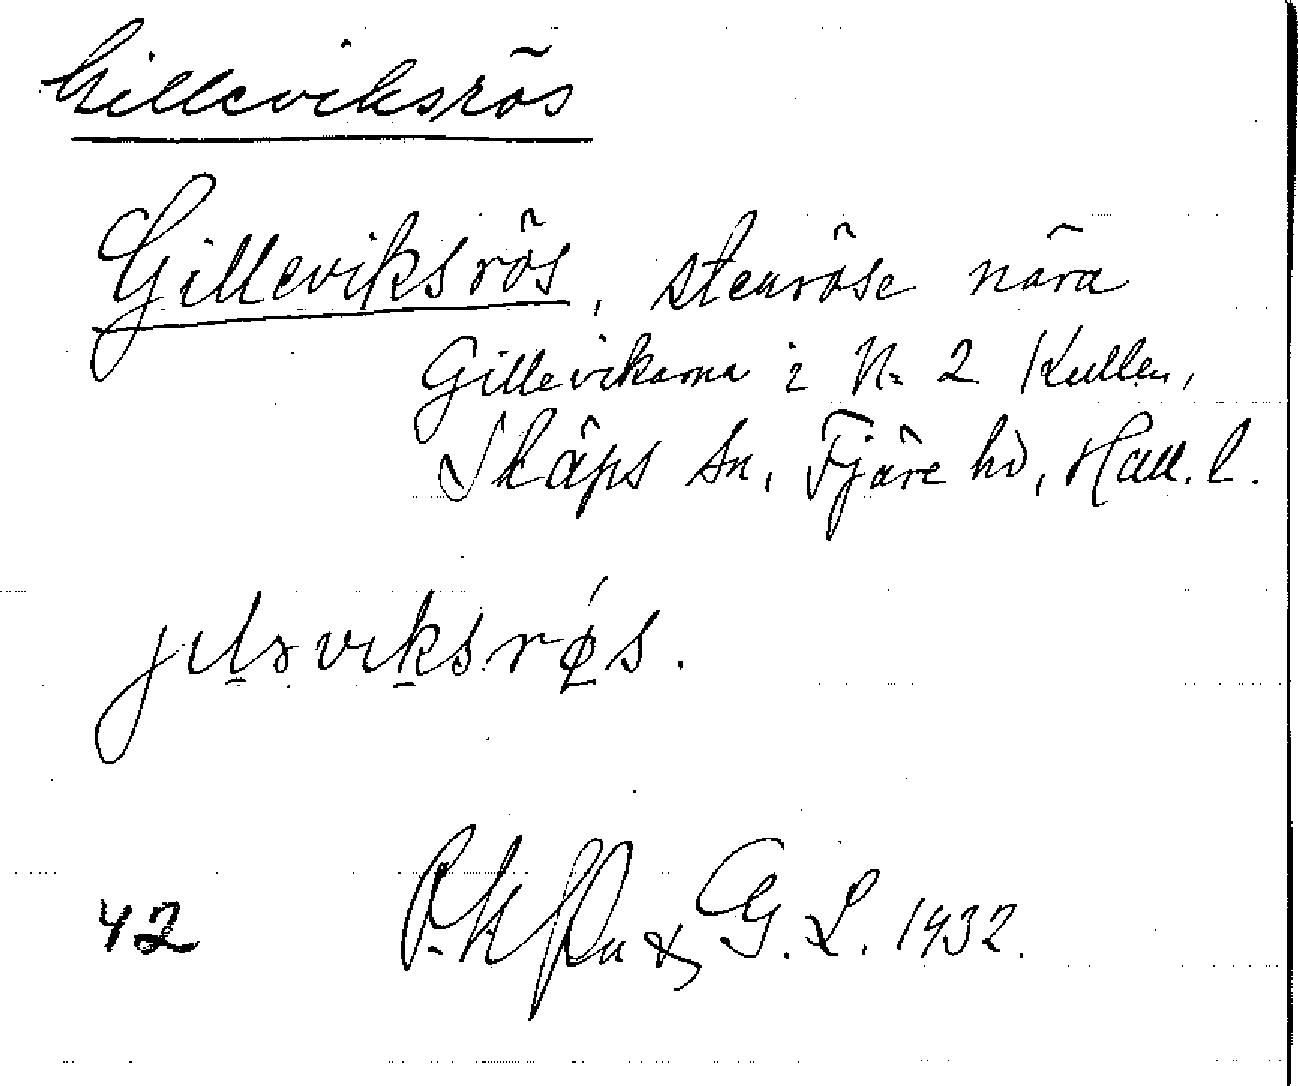 Gilleviksrös
Gilleviksrös, stenröse nära
Gillevikarna i N. 2 Kullen,
Släps sn, Fjäre hd, Hall. l.
jɪlɜvɪksrǿs.
42 G. L. 1932.